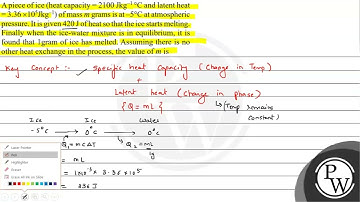 A piece of ice (heat capacity = 2100 Jkg⁻¹ °C and latent heat
= 3.36 ×10⁵ Jkg⁻¹) of mass m grams is at -5°C at atmospheric
pressure. It is given 420 J of heat so that the ice starts melting.
Finally when the ice-water mixture is in equilibrium, it is
found that 1gram of ice has melted. Assuming there is no
other heat exchange in the process, the value of m is
Key Concept :- Specific heat Capacity (Change in Temp)
+
Latent heat (Change in phase)
{Q = mL}
(Temp remains
constant)
Ice Ice Water
-5°C 0°C 0°C
Q₁ = mcΔT Q₂ = mL
1g
= mL
= 1×10⁻³ × 3.36 ×10⁵
= 336 J
PW